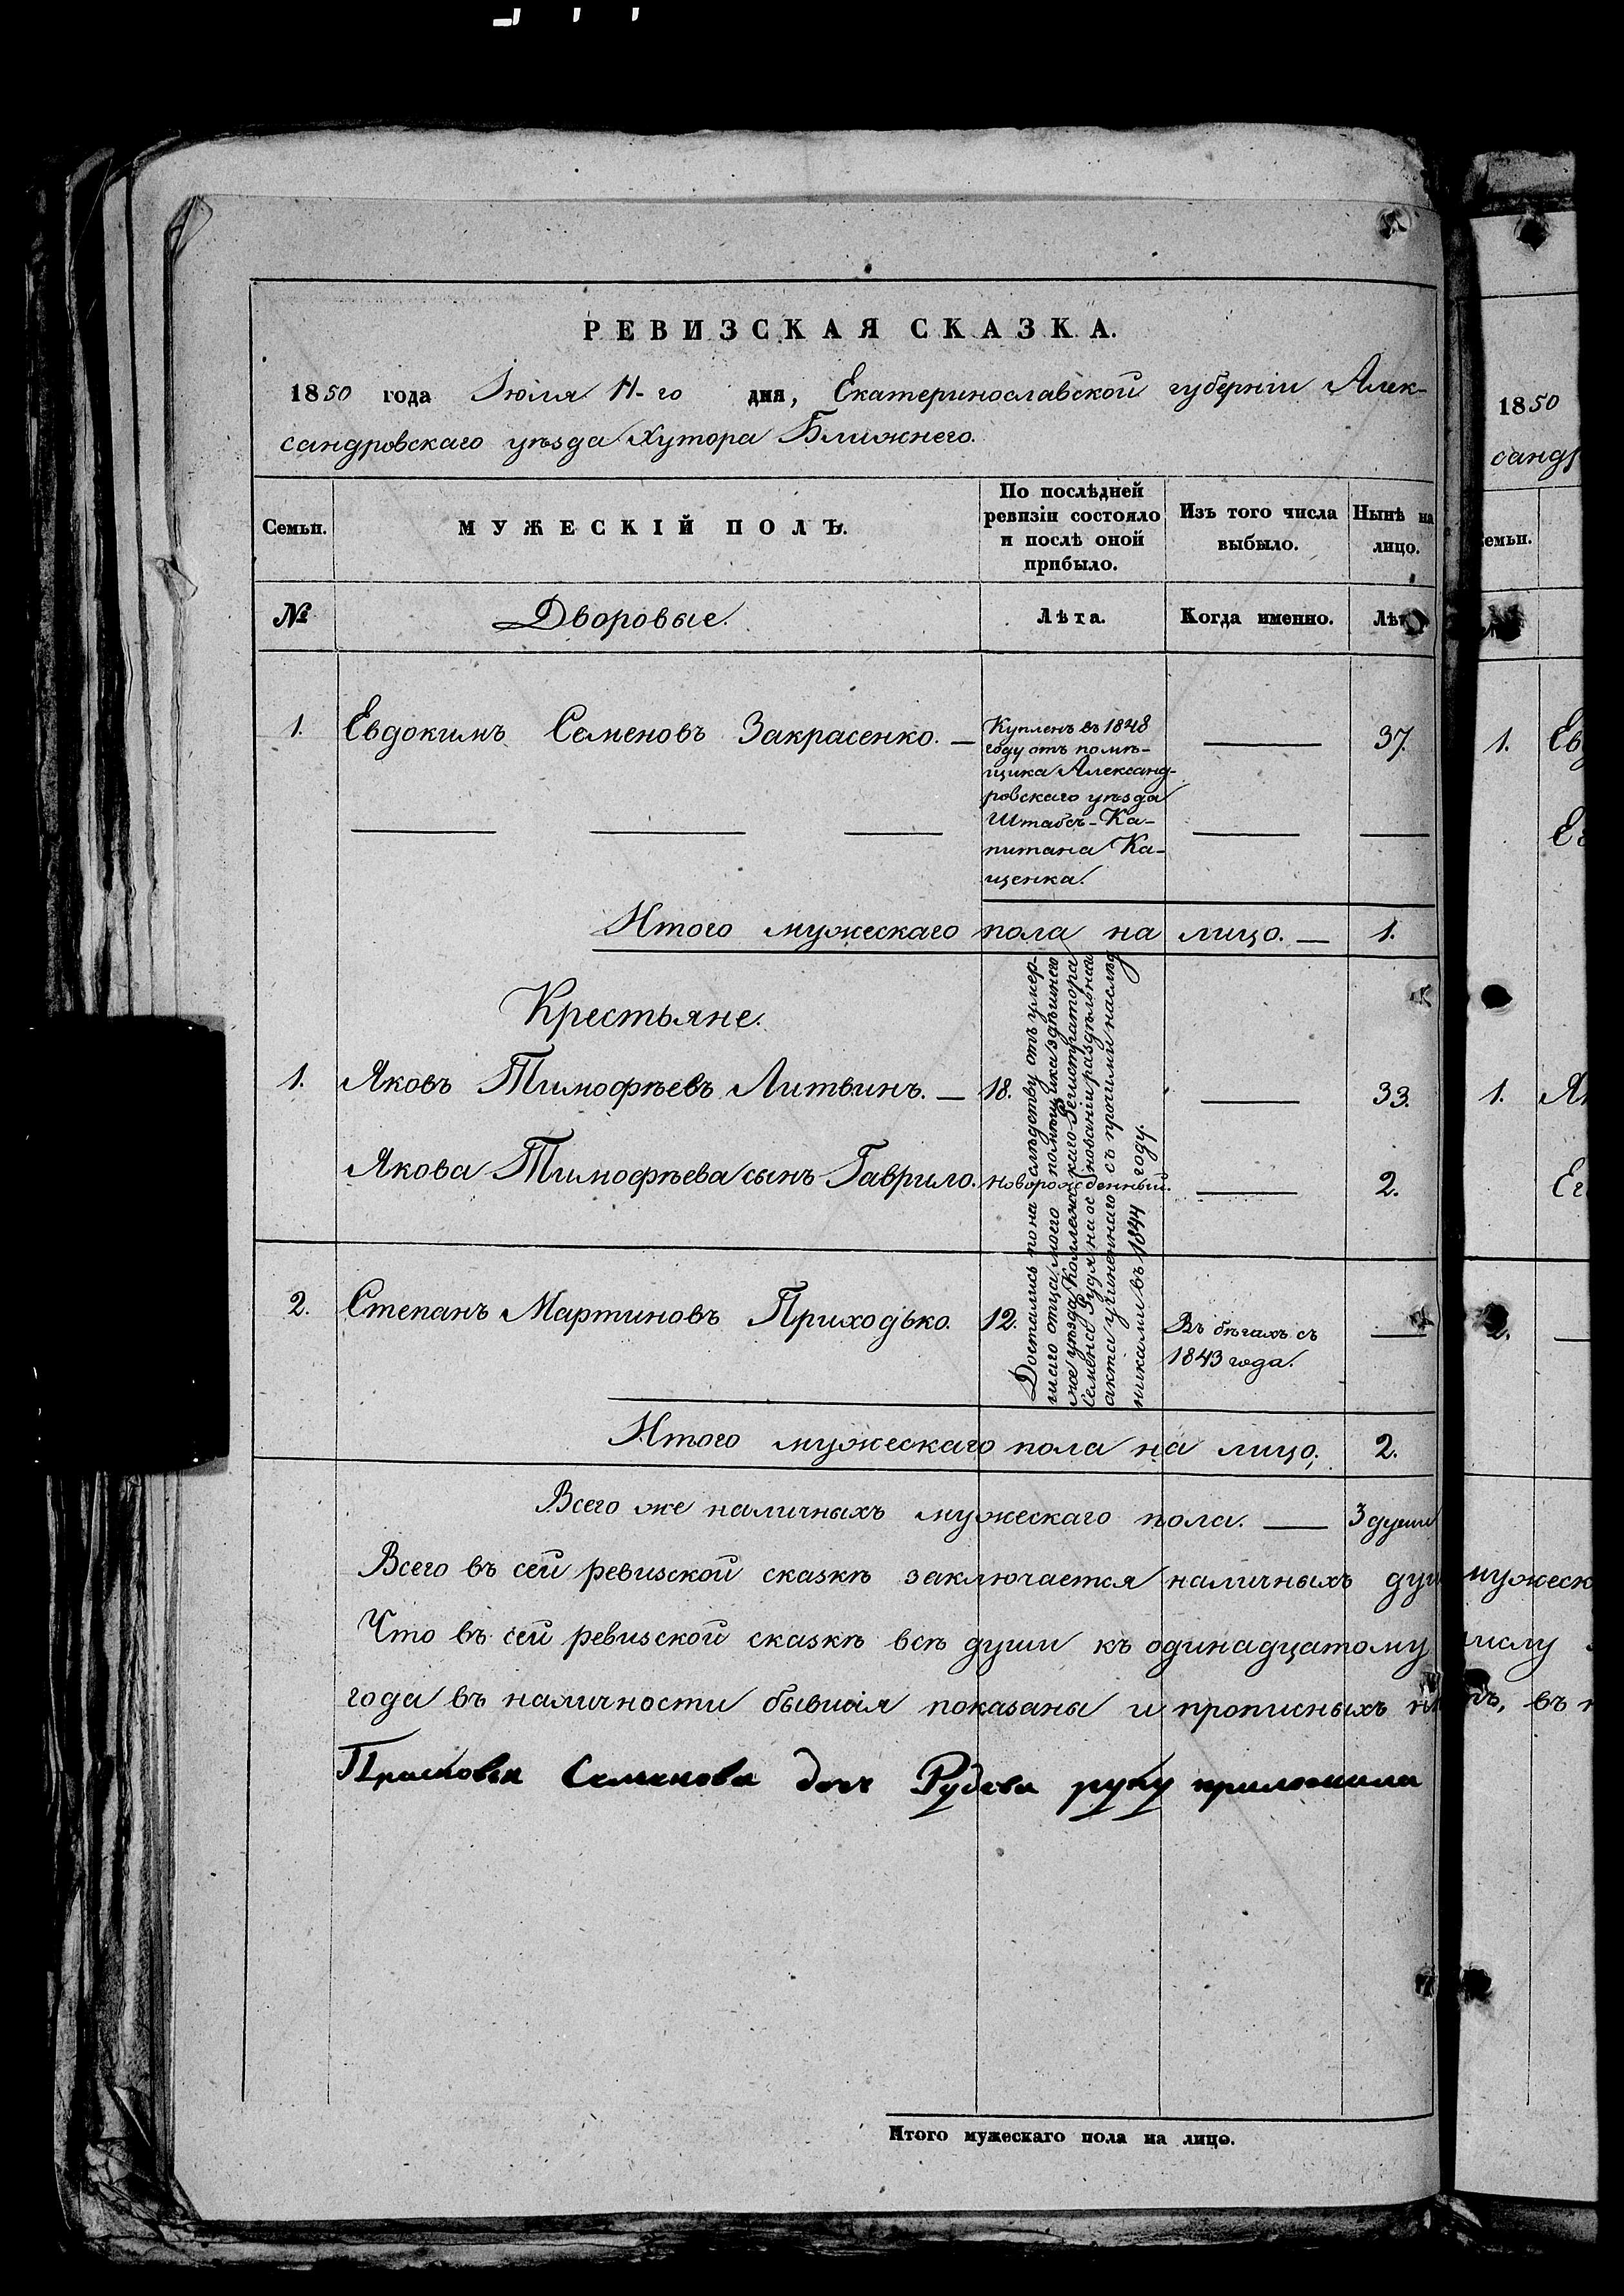 РЕВИЗСКАЯ СКАЗКА.
1850 года Іюля 11-го дня, Екатеринославской губерніи Алек-
сандровскаго уѣзда Хутора Ближнего.
Семьи.
МУЖЕСКІЙ ПОЛЪ.
По послѣдней
ревизіи состояло
и послѣ оной
прибыло.
Изъ того числа
выбыло.
Нынѣ на
лицо.
№
Дворовые.
Лѣта.
Когда именно.
1. Евдокимъ Семеновъ Закрасенко. — 37.
Купленъ въ 1848
году отъ помѣ-
щика Александ-
ровскаго уѣзда
Штабсъ-Ка-
питана Ка-
щенка.
Итого мужескаго пола на лицо. — 1.
Крестьяне.
1. Яковъ Тимофѣевъ Литвинъ. — 18. — 33.
Якова Тимофѣева сынъ Гаврило. новорожденный. — 2.
2. Степанъ Мартиновъ Приходько. 12. Въ бѣгахъ съ —
1843 года.
Достались по наслѣдству отъ умер-
шего отца моего помѣщика здѣшнего
же уѣзда Коллежскаго Регистратора
Семена Рудя на основаніи раздѣльнаго
акта учиненнаго съ прочими наслѣд
никами въ 1844 году.
Итого мужескаго пола на лицо, 2.
Всего же наличныхъ мужескаго пола. — 3 души
Всего въ сей ревизской сказкѣ заключается наличныхъ душ мужеск
Что въ сей ревизской сказкѣ всѣ души къ одинадцатому числу
года въ наличности бывшія показаны и прописныхъ нѣтъ, въ
Прасковья Семенова доч Рудева руку приложила
Итого мужескаго пола на лицо.
1850
санд
Семьи.
1. Евд
1. Як
Ег
2. —